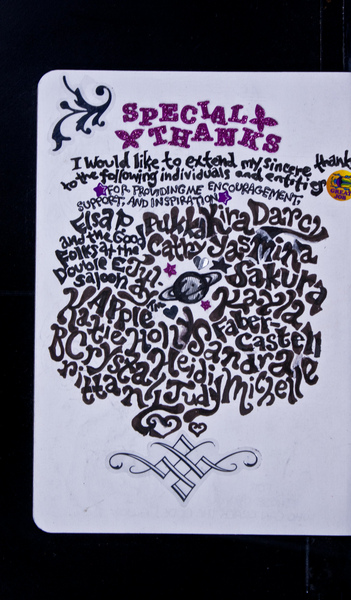 SPECIAL
THANKS
I would like to extend my sincere thank
to the following individuals and entities
FOR PROVIDING ME ENCOURAGEMENT,
SUPPORT, AND INSPIRATION
Elsa P Pukka Kira Darcy
and the Good Cathy Yasmina
Folks at the
Double E
Saloon Sakura
Apple Kayla
Katie Holly Faber-
Castell
Crystal Heidi Sandra
Brittani Judy Michelle
GREAT
JOB